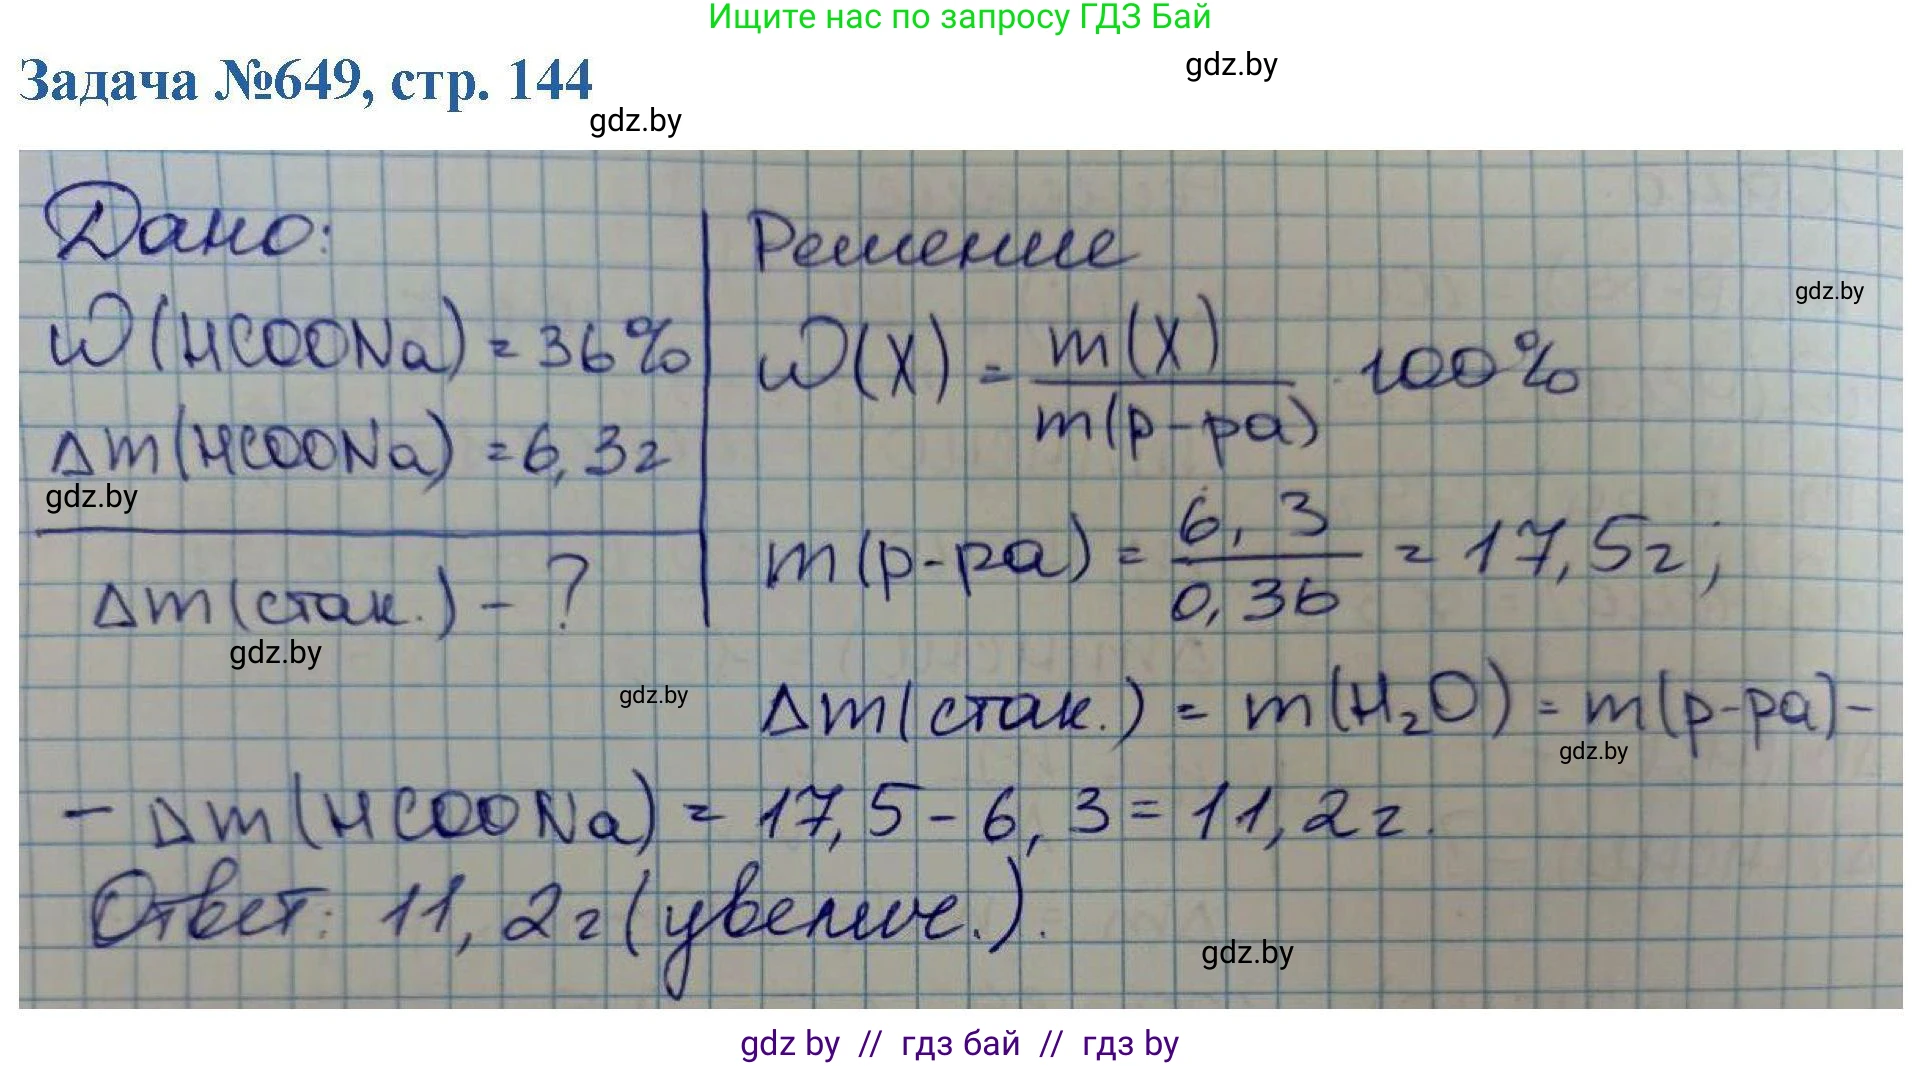 Ищите нас по запросу ГДЗ Бай
Задача №649, стр. 144
gdz.by
gdz.by
Дано:
Решение
gdz.by
W(HCOONa) = 36%
W(X) = m(X) / m(р-ра) · 100%
Δm(HCOONa) = 6,3г
gdz.by
m(р-ра) = 6,3 / 0,36 = 17,5г;
Δm(стак.) - ?
gdz.by
gdz.by
Δm(стак.) = m(H₂O) = m(р-ра) -
gdz.by
- Δm(HCOONa) = 17,5 - 6,3 = 11,2г.
Ответ: 11,2г (увелич.).
gdz.by
gdz by // гдз бай // гдз by